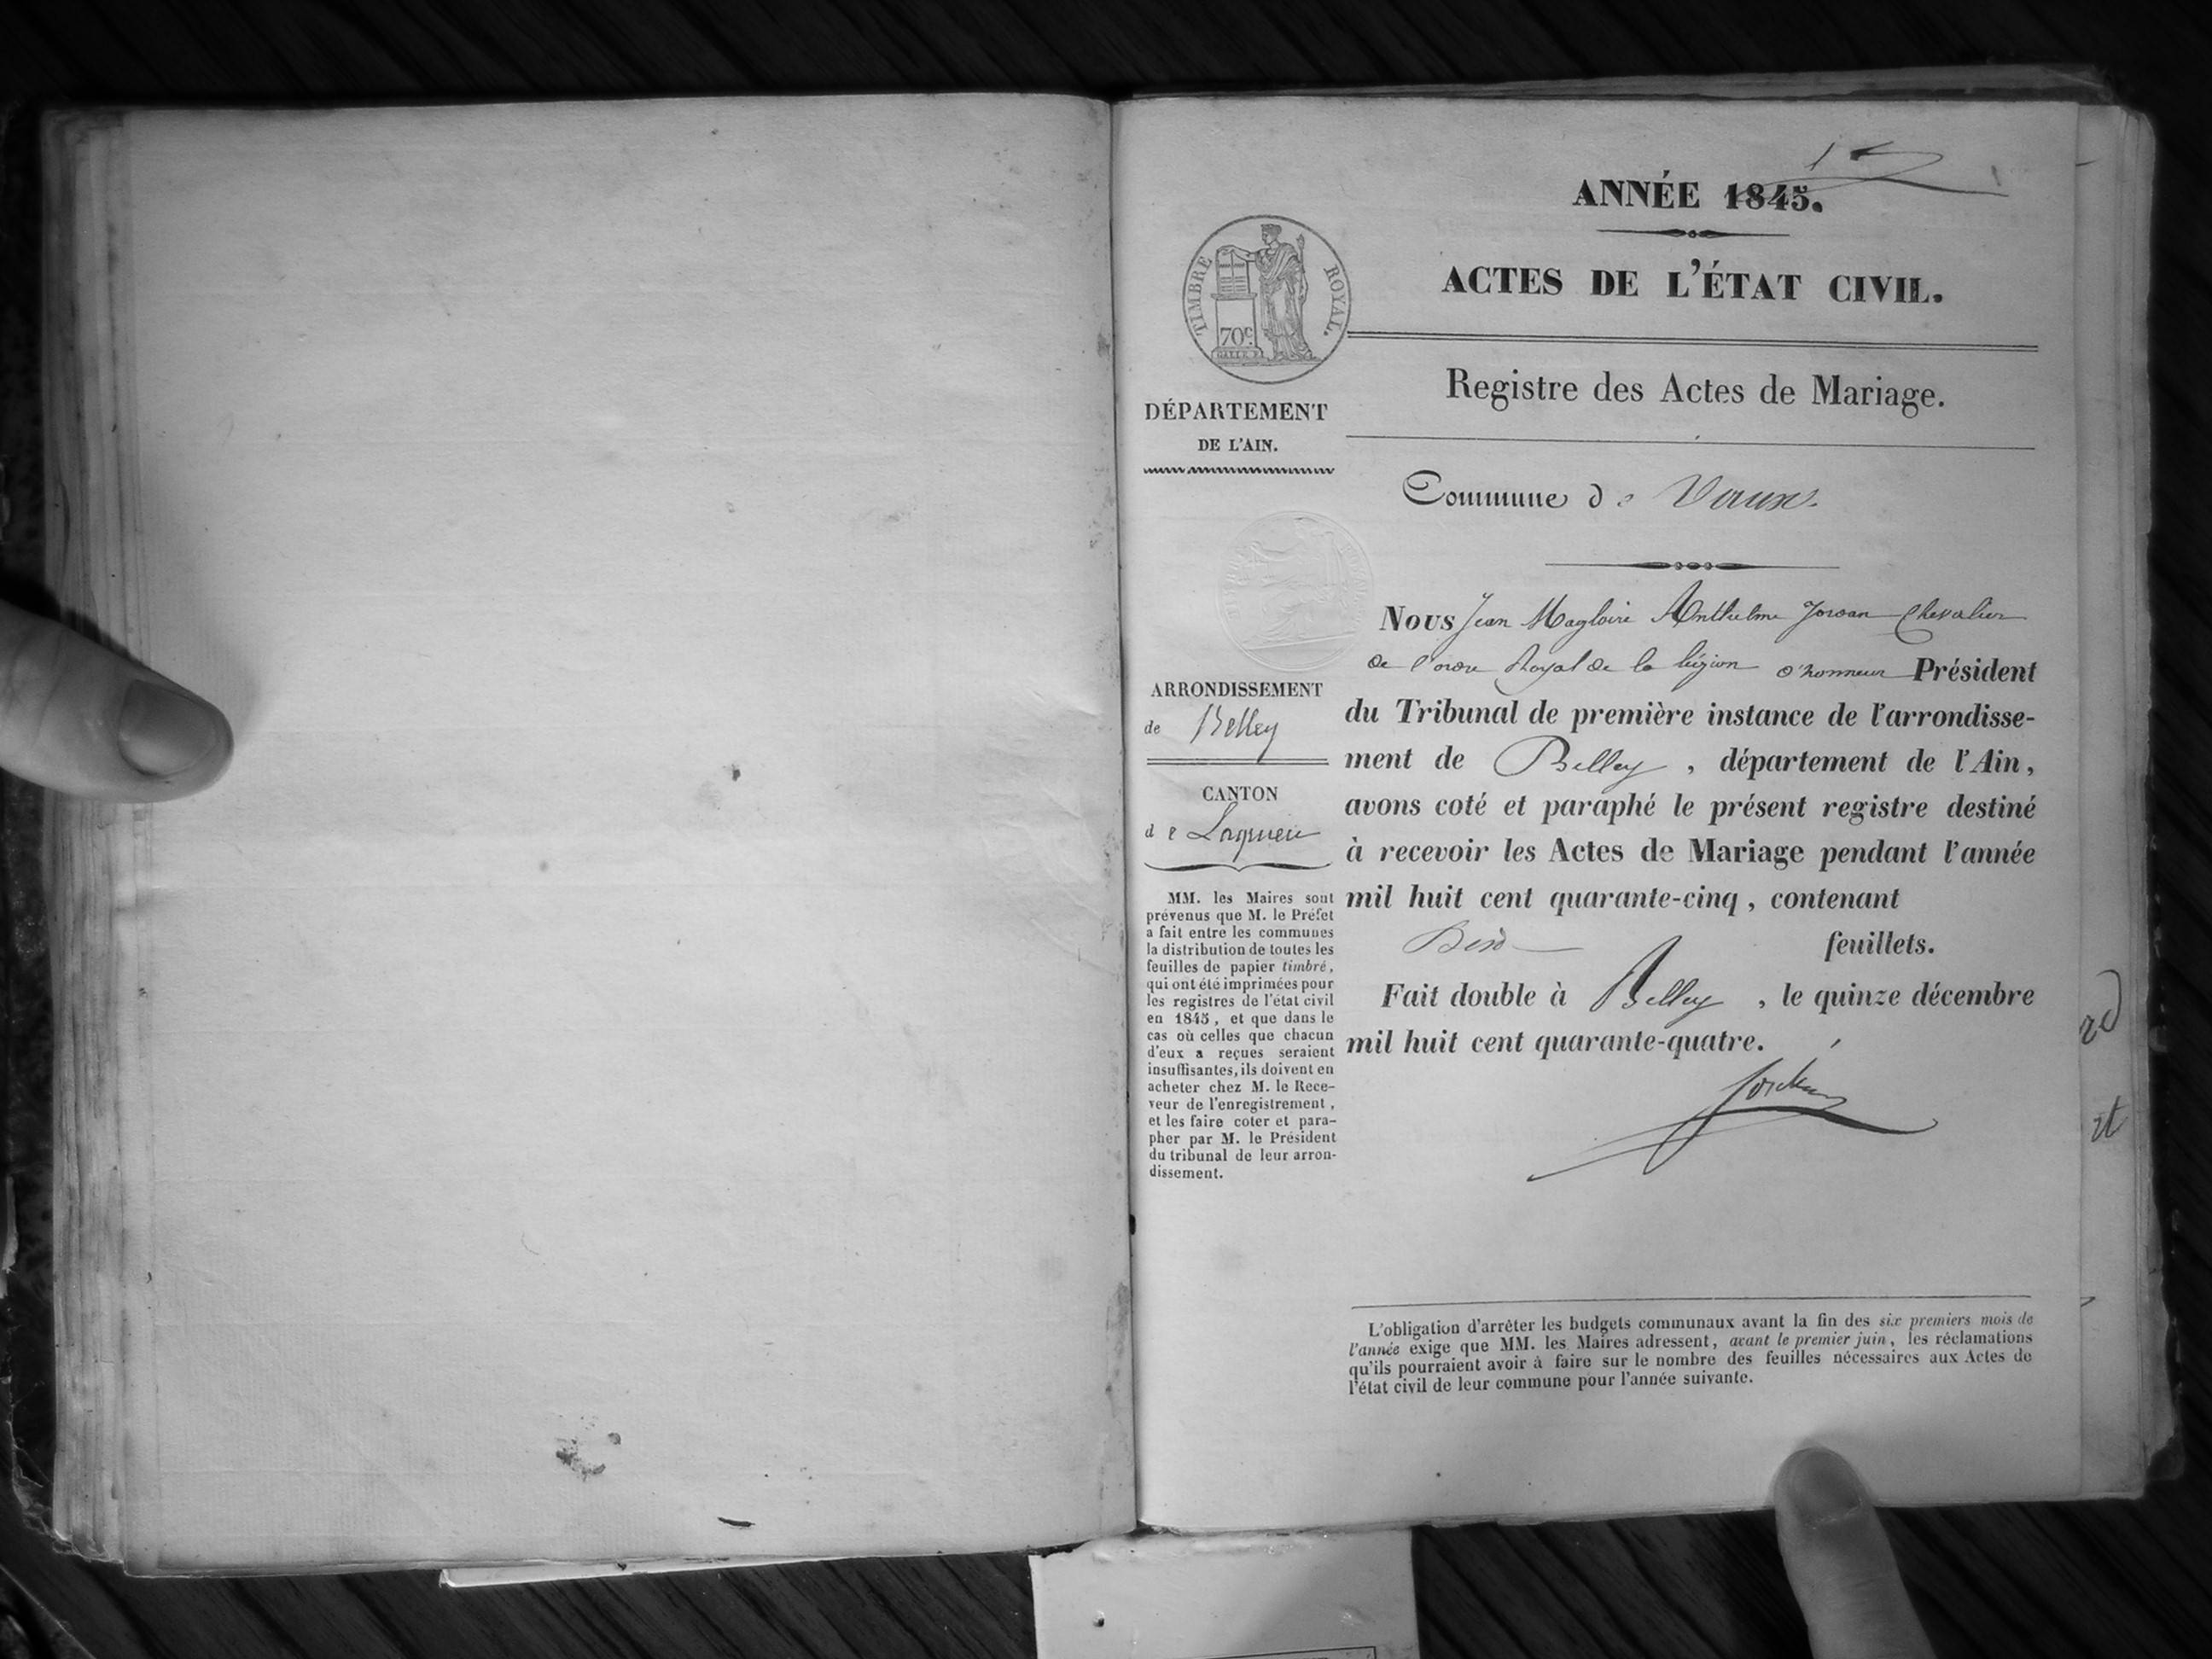 ANNÉE 1845.
ACTES DE L'ÉTAT CIVIL.
TIMBRE ROYAL.
70c
Registre des Actes de Mariage.
DÉPARTEMENT
DE L'AIN.
Commune de Vaux.
ARRONDISSEMENT
de Belley
CANTON
de Lagnieu
MM. les Maires sont
prévenus que M. le Préfet
a fait entre les communes
la distribution de toutes les
feuilles de papier timbré,
qui ont été imprimées pour
les registres de l'état civil
en 1845, et que dans le
cas où celles que chacun
d'eux a reçues seraient
insuffisantes, ils doivent en
acheter chez M. le Rece-
veur de l'enregistrement,
et les faire coter et para-
pher par M. le Président
du tribunal de leur arron-
dissement.
Nous Jean Magloire Anthelme Jordan Chevalier
de l'ordre Royal de la légion d'honneur Président
du Tribunal de première instance de l'arrondisse-
ment de Belley, département de l'Ain,
avons coté et paraphé le présent registre destiné
à recevoir les Actes de Mariage pendant l'année
mil huit cent quarante-cinq, contenant
feuillets.
Fait double à Belley, le quinze décembre
mil huit cent quarante-quatre.
Jordan
L'obligation d'arrêter les budgets communaux avant la fin des six premiers mois de
l'année exige que MM. les Maires adressent, avant le premier juin, les réclamations
qu'ils pourraient avoir à faire sur le nombre des feuilles nécessaires aux Actes de
l'état civil de leur commune pour l'année suivante.